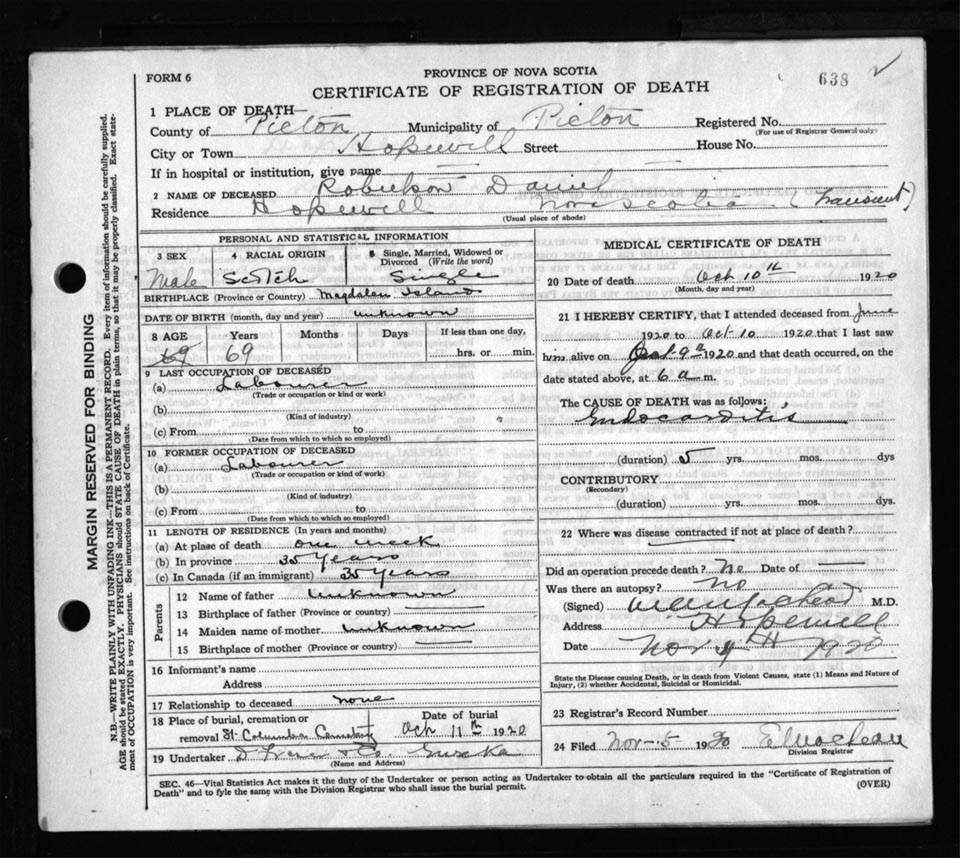 FORM 6
PROVINCE OF NOVA SCOTIA
638
CERTIFICATE OF REGISTRATION OF DEATH
1 PLACE OF DEATH—
County of Pictou Municipality of Pictou Registered No.
(For use of Registrar General only)
City or Town Hopewell Street House No.
If in hospital or institution, give name
2 NAME OF DECEASED Robertson Daniel
Residence Hopewell Nova Scotia (Transient)
(Usual place of abode)
PERSONAL AND STATISTICAL INFORMATION
3 SEX
4 RACIAL ORIGIN
5 Single, Married, Widowed or Divorced (Write the word)
Male Scotch Single
BIRTHPLACE (Province or Country) Magdalen Island
DATE OF BIRTH (month, day and year) unknown
8 AGE Years Months Days If less than one day,
69 69 hrs. or min.
9 LAST OCCUPATION OF DECEASED
(a) Labourer
(Trade or occupation or kind or work)
(b)
(Kind of industry)
(c) From to
(Date from which to which so employed)
10 FORMER OCCUPATION OF DECEASED
(a) Labourer
(Trade or occupation or kind of work)
(b)
(Kind of industry)
(c) From to
(Date from which to which so employed)
11 LENGTH OF RESIDENCE (In years and months)
(a) At place of death one week
(b) In province 35 years
(c) In Canada (if an immigrant) 35 years
Parents
12 Name of father unknown
13 Birthplace of father (Province or country)
14 Maiden name of mother unknown
15 Birthplace of mother (Province or country)
16 Informant's name
Address
17 Relationship to deceased none
18 Place of burial, cremation or Date of burial
removal St. Columba Cemetery Oct 11th 1920
19 Undertaker & Co. Eureka
(Name and Address)
MEDICAL CERTIFICATE OF DEATH
20 Date of death Oct 10th 1920
(Month, day and year)
21 I HEREBY CERTIFY, that I attended deceased from June
1920 to Oct 10 1920 that I last saw
him alive on Oct 9th 1920 and that death occurred, on the
date stated above, at 6 a m.
The CAUSE OF DEATH was as follows:
Endocarditis
(duration) 5 yrs. mos. dys
CONTRIBUTORY
(Secondary)
(duration) yrs. mos. dys.
22 Where was disease contracted if not at place of death?
Did an operation precede death? No Date of
Was there an autopsy? No
(Signed) M.D.
Address Hopewell
Date Nov 4 1920
State the Disease causing Death, or in death from Violent Causes, state (1) Means and Nature of
Injury, (2) whether Accidental, Suicidal or Homicidal.
23 Registrar's Record Number
24 Filed Nov-5 1920
Division Registrar
SEC. 46—Vital Statistics Act makes it the duty of the Undertaker or person acting as Undertaker to obtain all the particulars required in the "Certificate of Registration of
Death" and to fyle the same with the Division Registrar who shall issue the burial permit. (OVER)
MARGIN RESERVED FOR BINDING
N.B.—WRITE PLAINLY WITH UNFADING INK—THIS IS A PERMANENT RECORD. Every item of information should be carefully supplied.
AGE should be stated EXACTLY. PHYSICIANS should STATE CAUSE OF DEATH in plain terms, so that it may be properly classified. Exact state-
ment of OCCUPATION is very important. See instructions on back of Certificate.